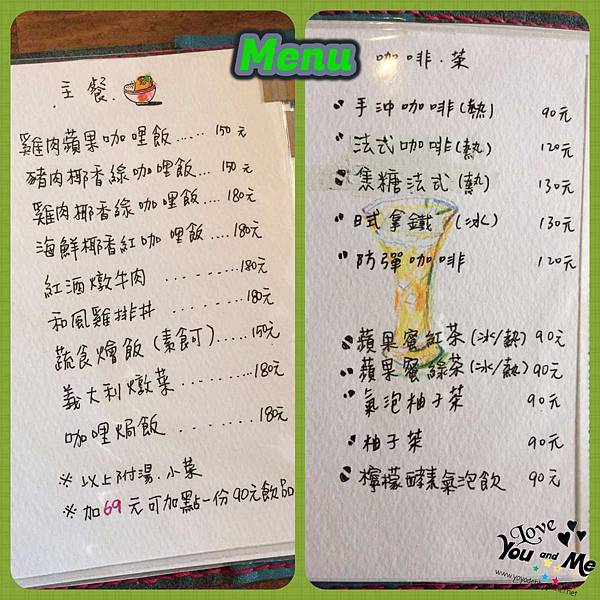 Menu
.主餐.
雞肉蘋果咖哩飯...... 150元
豬肉椰香綠咖哩飯... 150元
雞肉椰香綠咖哩飯....180元
海鮮椰香紅咖哩飯....180元
紅酒燉牛肉 ........180元
和風雞排丼 ........180元
蔬食燴飯(素食可).....150元
義大利燉菜.........180元
咖哩焗飯 ........180元
※以上附湯.小菜
※加69元可加點一份90元飲品
咖啡.茶
手沖咖啡(熱) 90元
法式咖啡(熱) 120元
焦糖法式(熱) 130元
日式拿鐵 (冰) 130元
防彈咖啡 120元
蘋果蜜紅茶(冰/熱) 90元
蘋果蜜綠茶(冰/熱) 90元
氣泡柚子茶 90元
柚子茶 90元
檸檬酵素氣泡飲 90元
Love
You and Me